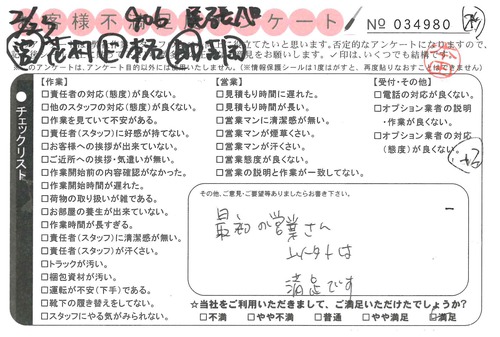 客様不満足アンケート
№ 034980
に役立てたいと思います。否定的なアンケートになりますので、
✓印は、いくつでも結構です。
のアンケートは、アンケート目的以外には
(※情報保護シールは1度はがすと、再度貼りなおすことはできません)
チェックリスト
【作業】
□責任者の対応(態度)が良くない。
□他のスタッフの対応(態度)が良くない。
□作業を見ていて不安がある。
□責任者(スタッフ)に好感が持てない。
□お客様への挨拶が出来ていない。
□ご近所への挨拶・気遣いが無い。
□作業開始前の内容確認がなかった。
□作業開始時間が遅れた。
□荷物の取り扱いが雑である。
□お部屋の養生が出来ていない。
□作業時間が長すぎる。
□責任者(スタッフ)に清潔感が無い。
□責任者(スタッフ)が汗くさい。
□トラックが汚い。
□梱包資材が汚い。
□運転が不安(下手)である。
□靴下の履き替えをしてない。
□スタッフにやる気がみられない。
【営業】
□見積もり時間に遅れた。
□見積もり時間が長い。
□営業マンに清潔感が無い。
□営業マンが煙草くさい。
□営業マンが汗くさい。
□営業態度が良くない。
□営業の説明と作業が一致してない。
【受付・その他】
□電話の対応が良くない。
□オプション業者の説明
・作業が良くない。
□オプション業者の対応
(態度)が良くない。
その他、ご意見・ご要望等ありましたらお書き下さい。
最初の営業さん
以外は
満足です
☆当社をご利用いただきまして、ご満足いただけたでしょうか?
□不満 □やや不満 □普通 □やや満足 □満足